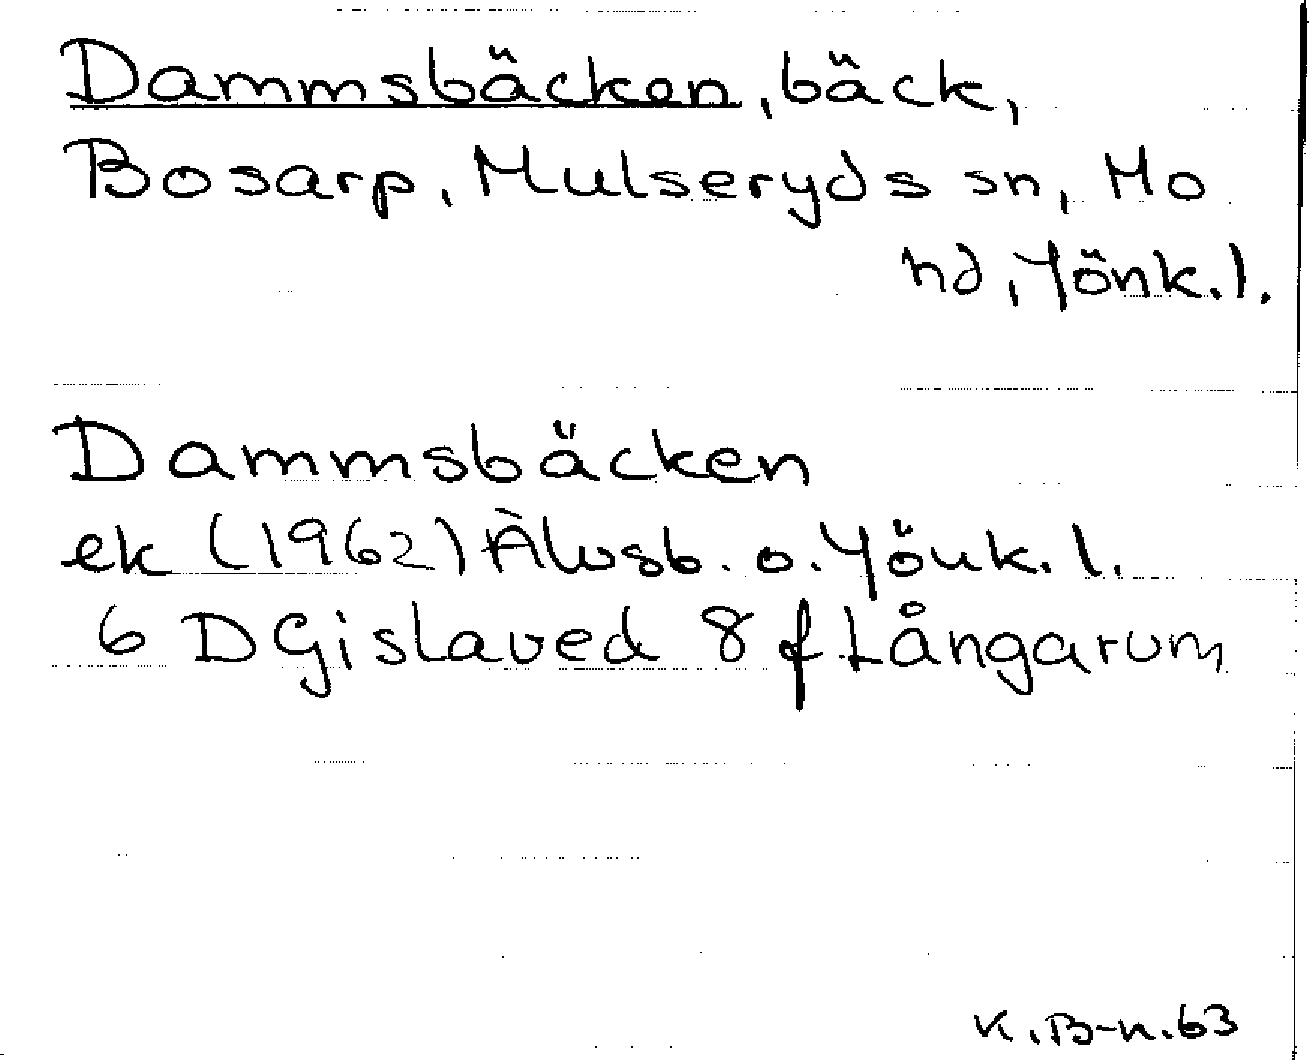 Dammsbäcken, bäck,
Bosarp, Mulseryds sn, Mo
hd, Jönk. l.
Dammsbäcken
ek (1962) Älvsb. o. Jönk. l.
6 D Gislaved 8 f Långarum
K. B-n. 63